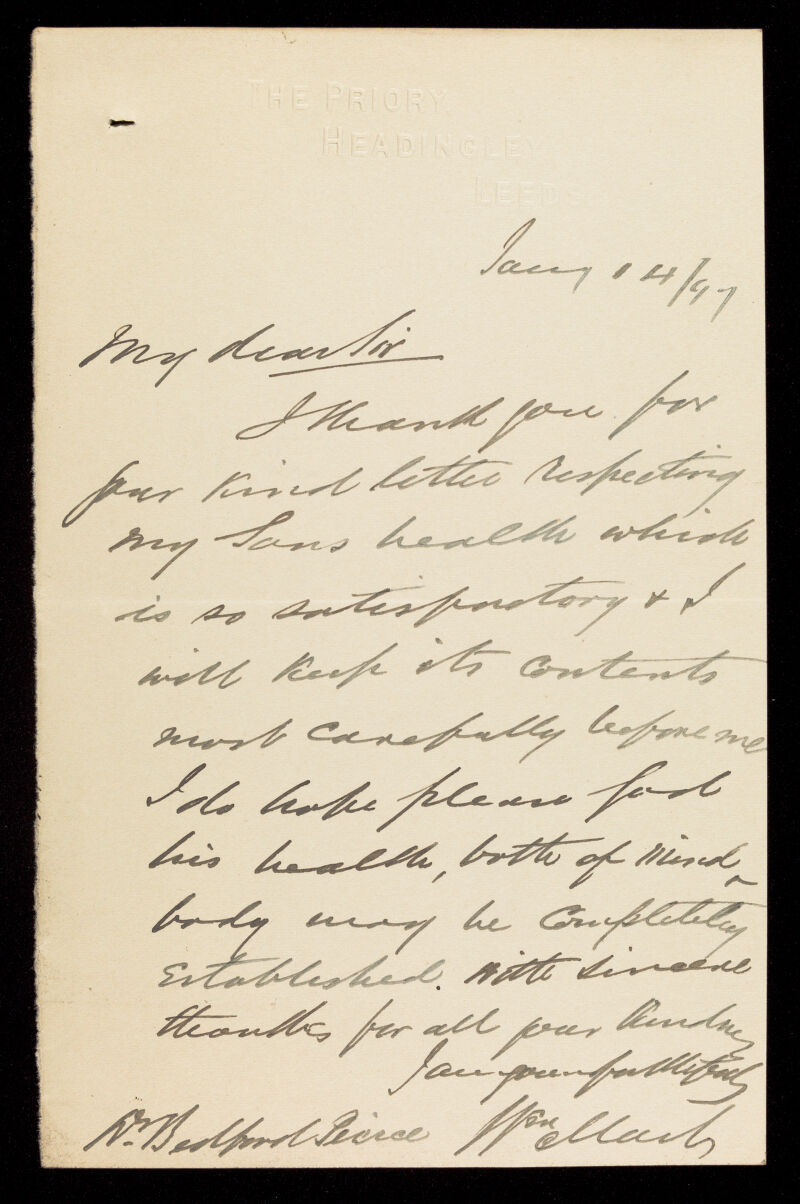 THE PRIORY,
HEADINGLEY
LEEDS.
Jany 14/97
My dear Sir
I thank you for
your kind letter respecting
my Sons health which
is so satisfactory & I
will keep its contents
most carefully before me
I do hope please God
his health, both of Mind &
body may be completely
Established. With sincere
thanks for all your kindness
I am yours faithfully
Wm
Dr. Bedford Pierce